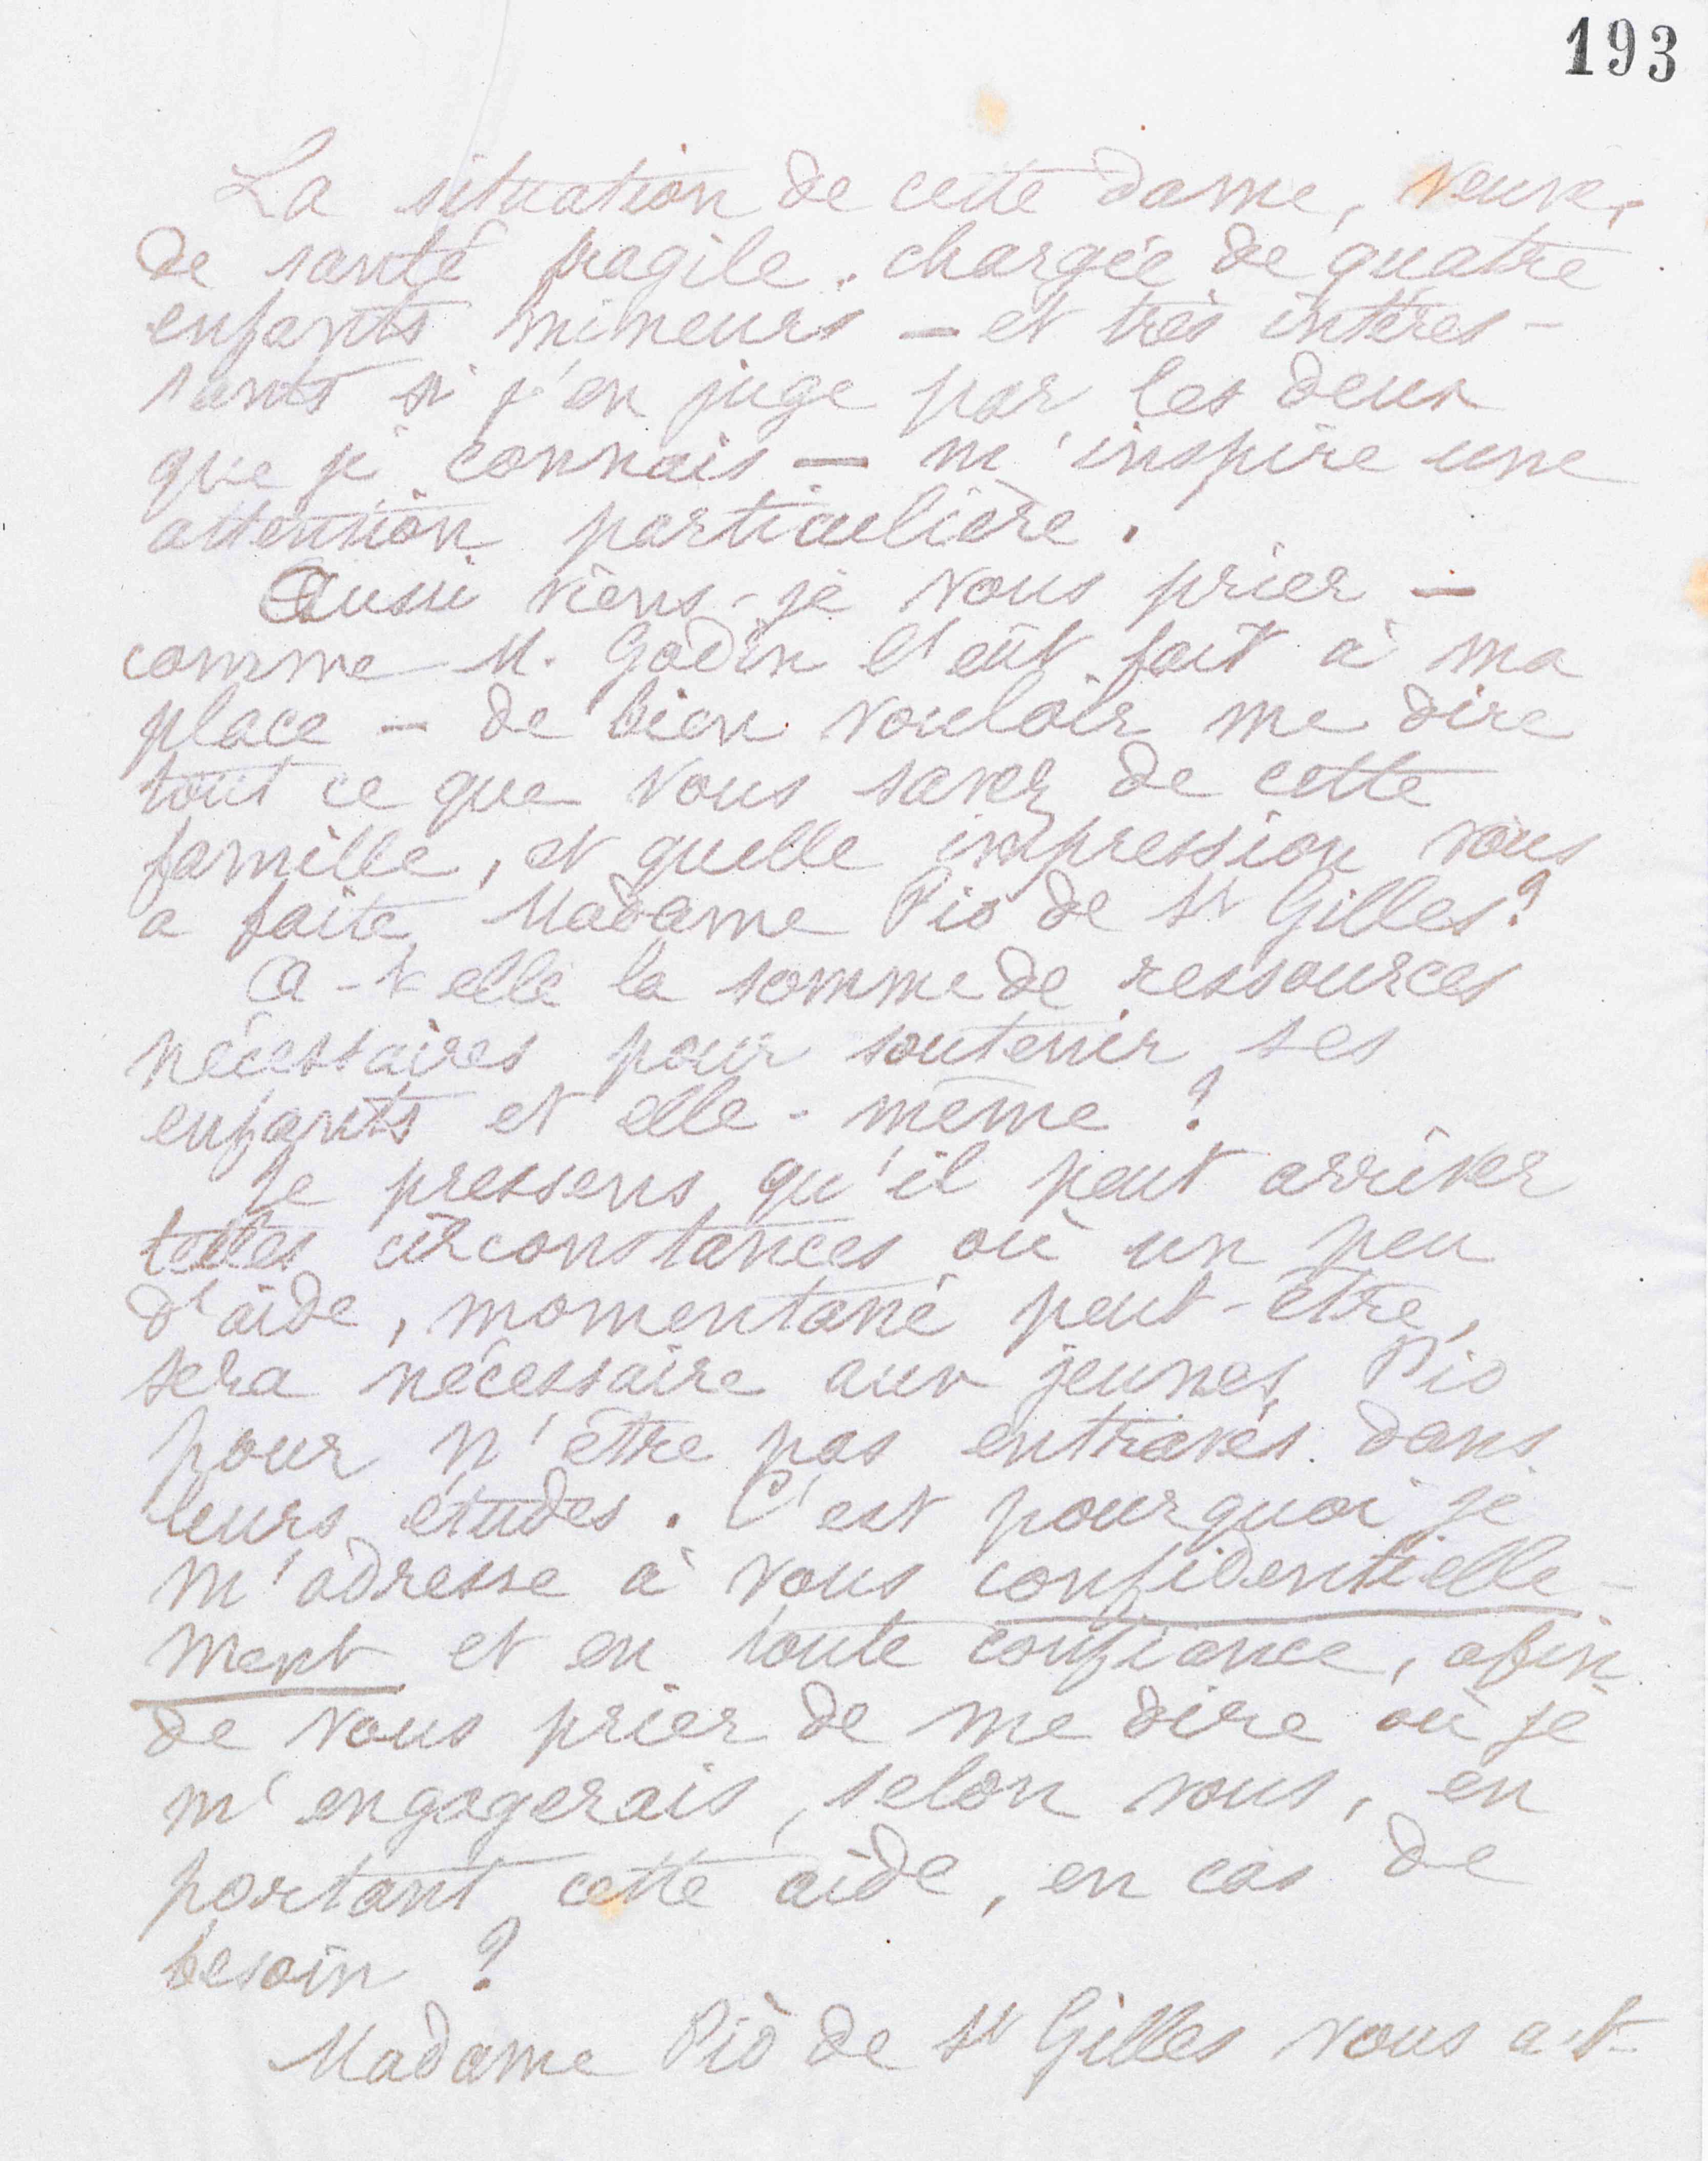 193
La situation de cette dame, veuve,
de santé fragile, chargée de quatre
enfants mineurs — et très intéres-
sants si j'en juge par les deux
que je connais — m'inspire une
attention particulière.
Aussi viens-je vous prier —
comme M. Godin l'eût fait à ma
place — de bien vouloir me dire
tout ce que vous savez de cette
famille, et quelle impression vous
a faite Madame Pio de St Gilles?
A-t-elle la somme de ressources
nécessaires pour soutenir ses
enfants et elle-même ?
Je pressens qu'il peut arriver
telles circonstances où un peu
d'aide, momentané peut-être,
sera nécessaire aux jeunes Pio
pour n'être pas entravés dans
leurs études. C'est pourquoi je
m'adresse à vous confidentielle-
ment et en toute confiance, afin
de vous prier de me dire où je
m'engagerais, selon vous, en
portant cette aide, en cas de
besoin ?
Madame Pio de St Gilles vous a-t-